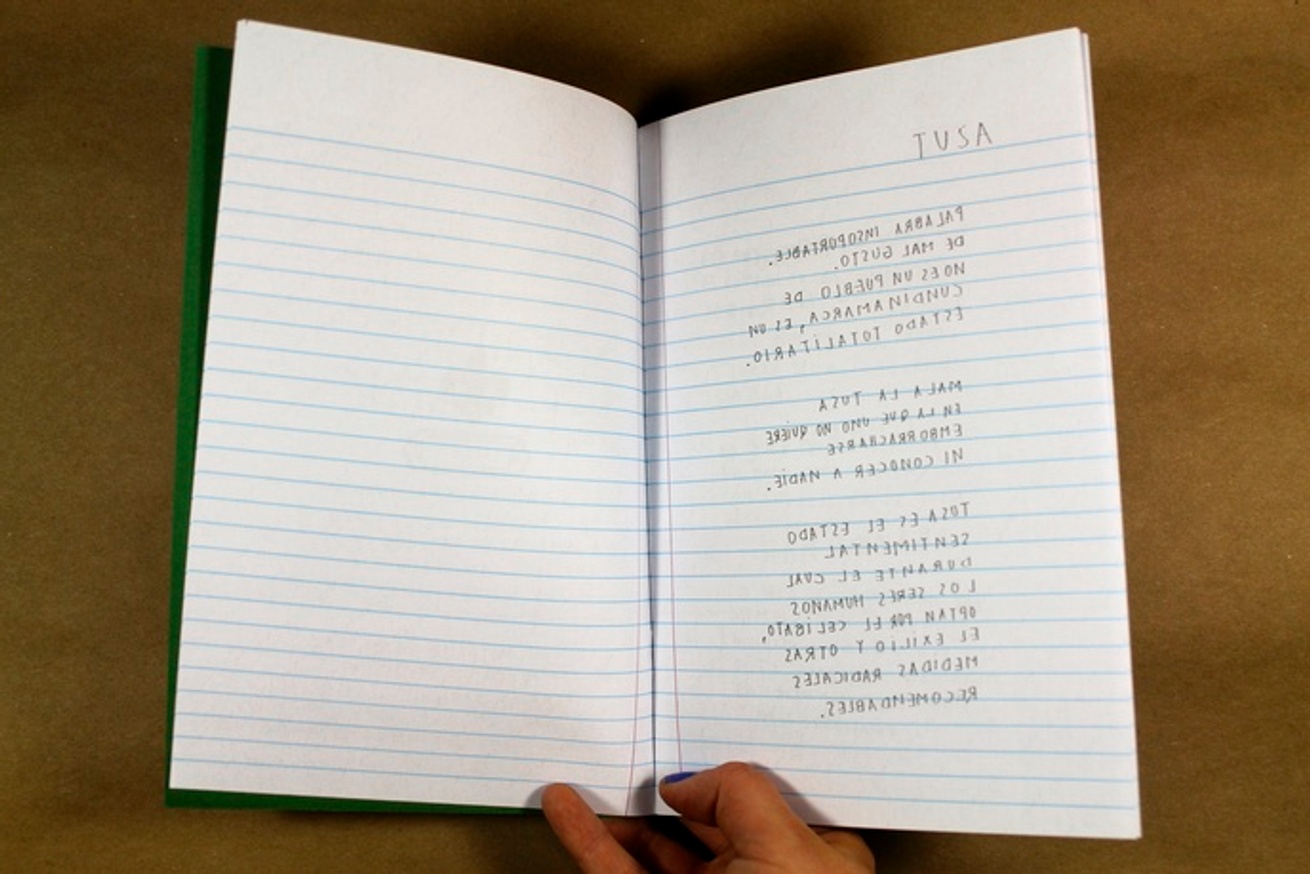 TUSA
PALABRA INSOPORTABLE.
DE MAL GUSTO.
NO ES UN PUEBLO DE
CUNDINAMARCA, ES UN
ESTADO TOTALITARIO.
MALA LA TUSA
EN LA QUE UNO NO QUIERE
EMBORRACHARSE
NI CONOCER A NADIE.
TUSA ES EL ESTADO
SENTIMENTAL
DURANTE EL CUAL
LOS SERES HUMANOS
OPTAN POR EL CELIBATO,
EL EXILIO Y OTRAS
MEDIDAS RADICALES
RECOMENDABLES.